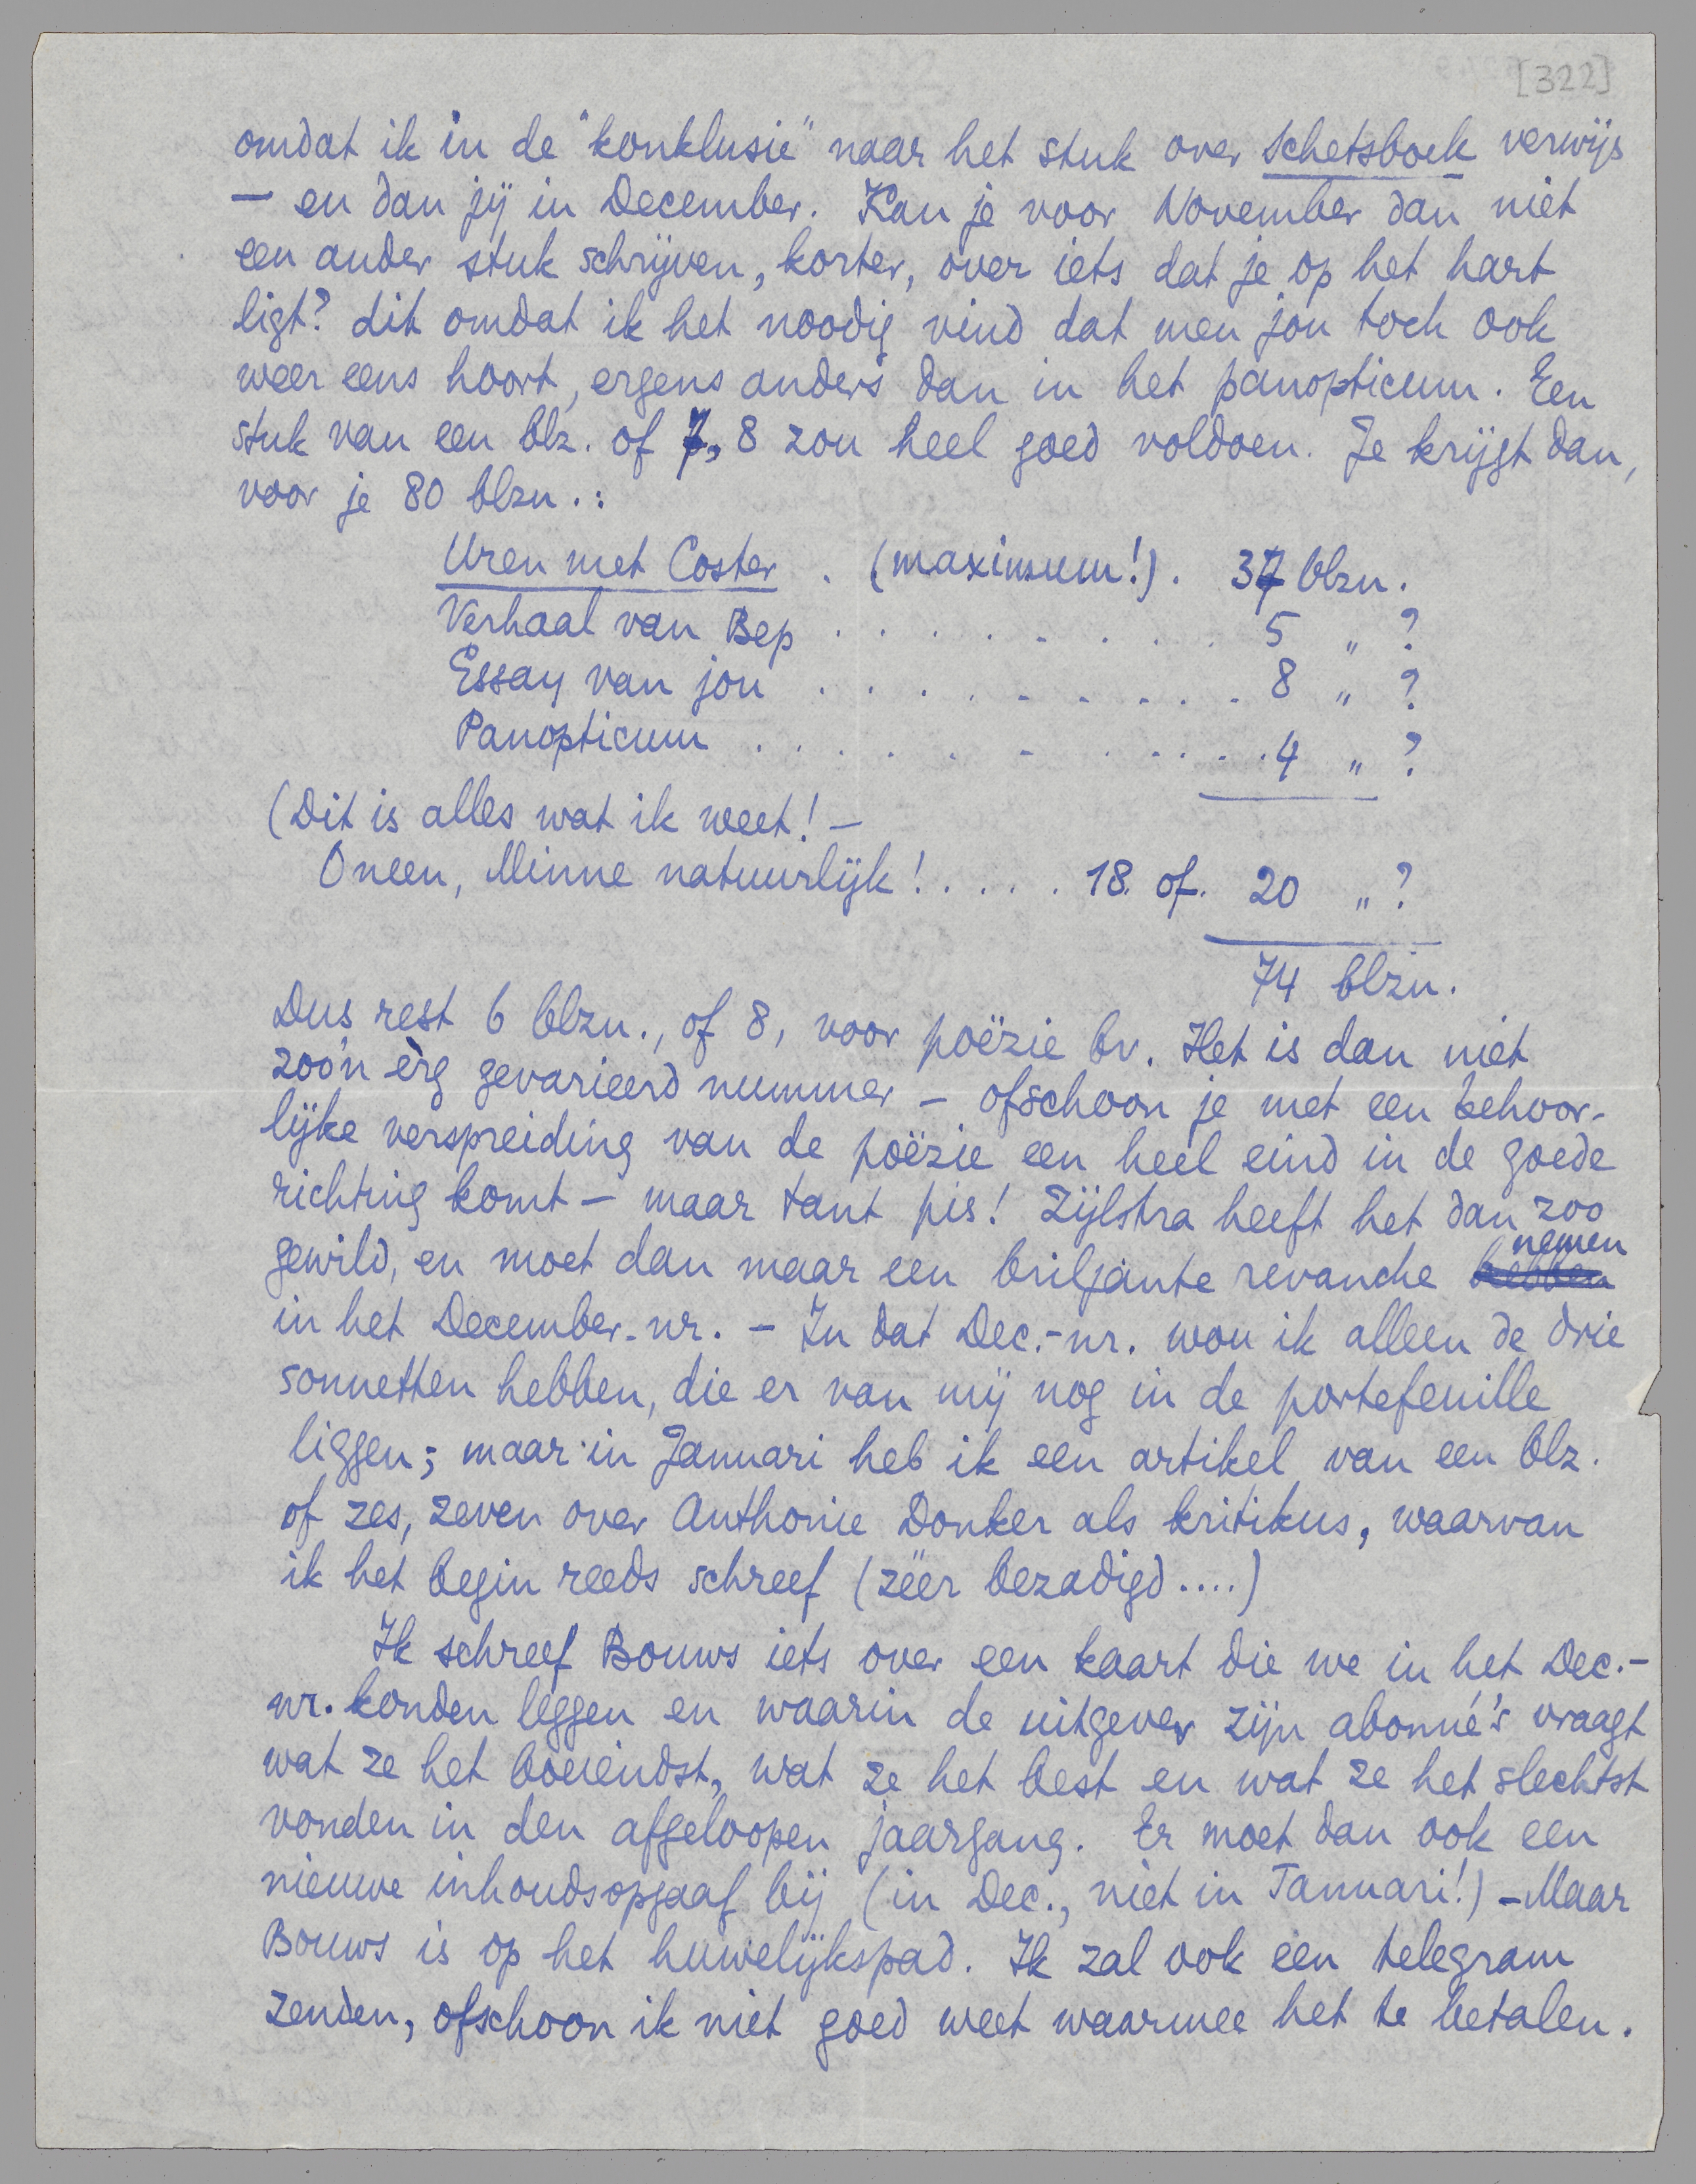 [322]
omdat ik in de "konklusie" naar het stuk over Schetsboek verwijs
— en dan jij in December. Kan je voor November dan niet
een ander stuk schrijven, korter, over iets dat je op het hart
ligt? dit omdat ik het noodig vind dat men jou toch ook
weer eens hoort, ergens anders dan in het panopticum. Een
stuk van een blz. of 7, 8 zou heel goed voldoen. Je krijgt dan,
voor je 80 blzn.:
Uren met Coster . (maximum!) . 37 blzn.
Verhaal van Bep . . . . . . . . . 5 „ ?
Essay van jou . . . . . . . . . . 8 „ ?
Panopticum . . . . . . . . . . . 4 „ ?
(Dit is alles wat ik weet! —
O neen, Minne natuurlijk! . . . . 18. of. 20 „ ?
74 blzn.
Dus rest 6 blzn., of 8, voor poëzie bv. Het is dan niet
zoo'n èrg gevarieerd nummer — ofschoon je met een behoor-
lijke verspreiding van de poëzie een heel eind in de goede
richting komt — maar tant pis! Zijlstra heeft het dan zoo
gewild, en moet dan maar een briljante revanche hebben nemen
in het December-nr. — In dat Dec.-nr. wou ik alleen de drie
sonnetten hebben, die er van mij nog in de portefeuille
liggen; maar in Januari heb ik een artikel van een blz.
of zes, zeven over Anthonie Donker als kritikus, waarvan
ik het begin reeds schreef (zéér bezadigd....)
Ik schreef Bouws iets over een kaart die we in het Dec.-
nr. konden leggen en waarin de uitgever zijn abonné's vraagt
wat ze het boeiendst, wat ze het best en wat ze het slechtst
vonden in den afgeloopen jaargang. Er moet dan ook een
nieuwe inhoudsopgaaf bij (in Dec., niet in Januari!) — Maar
Bouws is op het huwelijkspad. Ik zal ook een telegram
zenden, ofschoon ik niet goed weet waarmee het te betalen.